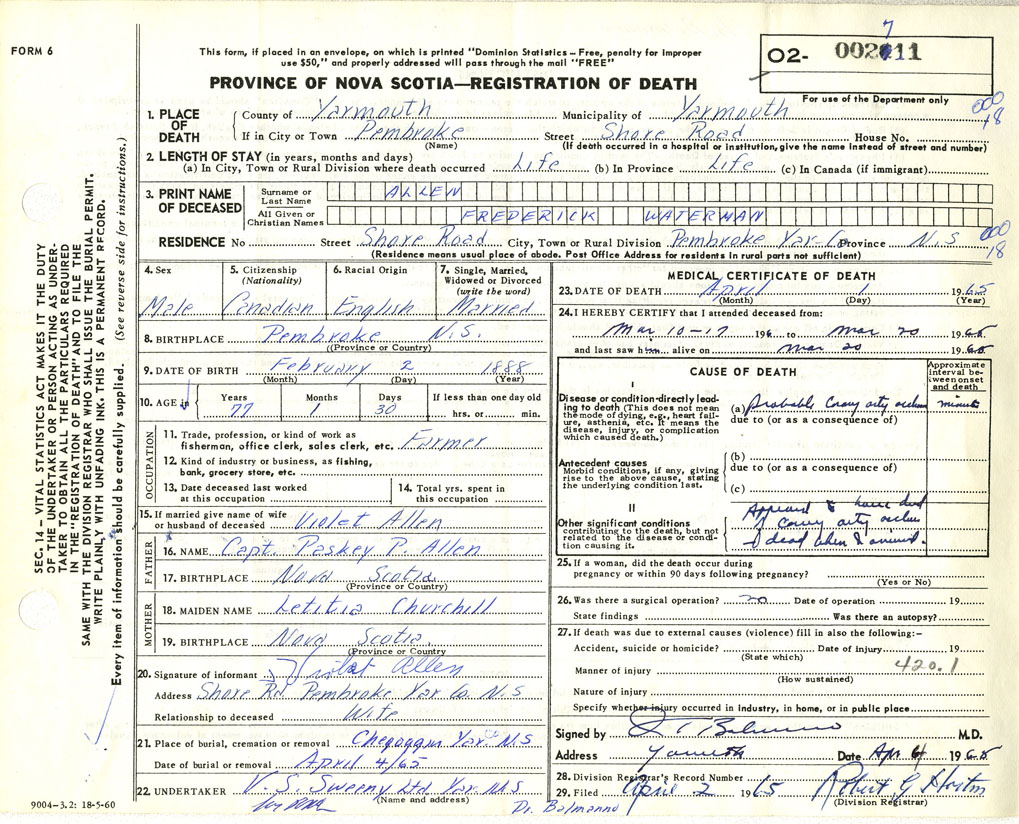 FORM 6
This form, if placed in an envelope, on which is printed "Dominion Statistics – Free, penalty for improper
use $50," and properly addressed will pass through the mail "FREE"
PROVINCE OF NOVA SCOTIA—REGISTRATION OF DEATH
7
O2- 002611
For use of the Department only
000
18
1. PLACE OF DEATH
County of Yarmouth Municipality of Yarmouth
If in City or Town Pembroke Street Shore Road House No.
(Name) (If death occurred in a hospital or institution, give the name instead of street and number)
2. LENGTH OF STAY (in years, months and days)
(a) In City, Town or Rural Division where death occurred Life (b) In Province Life (c) In Canada (if immigrant)
3. PRINT NAME OF DECEASED
Surname or Last Name ALLEN
All Given or Christian Names FREDERICK WATERMAN
RESIDENCE No Street Shore Road City, Town or Rural Division Pembroke Yar-Co Province N.S
000
18
(Residence means usual place of abode. Post Office Address for residents in rural parts not sufficient)
4. Sex
Male
5. Citizenship
(Nationality)
Canadian
6. Racial Origin
English
7. Single, Married,
Widowed or Divorced
(write the word)
Married
8. BIRTHPLACE Pembroke N.S.
(Province or Country)
9. DATE OF BIRTH February 2 1888
(Month) (Day) (Year)
10. AGE in
Years Months Days If less than one day old
77 1 30 hrs. or min.
OCCUPATION
11. Trade, profession, or kind of work as
fisherman, office clerk, sales clerk, etc. Farmer
12. Kind of industry or business, as fishing,
bank, grocery store, etc.
13. Date deceased last worked
at this occupation
14. Total yrs. spent in
this occupation
15. If married give name of wife
or husband of deceased Violet Allen
FATHER
16. NAME Capt. Paskey P. Allen
17. BIRTHPLACE Nova Scotia
(Province or Country)
MOTHER
18. MAIDEN NAME Letitia Churchill
19. BIRTHPLACE Nova Scotia
(Province or Country
20. Signature of informant Allen
Address Shore Rd Pembroke Yar Co. N.S
Relationship to deceased Wife
21. Place of burial, cremation or removal Chegoggin Yar Co N.S
Date of burial or removal April 4/65
22. UNDERTAKER V. S. Sweeny Ltd. Yar. N.S
(Name and address)
MEDICAL CERTIFICATE OF DEATH
23. DATE OF DEATH April 1 1965
(Month) (Day) (Year)
24. I HEREBY CERTIFY that I attended deceased from:
Mar 10-17 196 to Mar 20 1965
and last saw him alive on Mar 20 1965
CAUSE OF DEATH
Approximate
interval be-
tween onset
and death
I
Disease or condition directly lead-
ing to death (This does not mean
the mode of dying, e.g., heart fail-
ure, asthenia, etc. It means the
disease, injury, or complication
which caused death.)
(a) Probable minutes
due to (or as a consequence of)
Antecedent causes
Morbid conditions, if any, giving
rise to the above cause, stating
the underlying condition last.
(b)
due to (or as a consequence of)
(c)
II
Other significant conditions
contributing to the death, but not
related to the disease or condi-
tion causing it.
Appeared to have died
dead when I arrived.
25. If a woman, did the death occur during
pregnancy or within 90 days following pregnancy?
(Yes or No)
26. Was there a surgical operation? no Date of operation 19
State findings Was there an autopsy?
27. If death was due to external causes (violence) fill in also the following:–
Accident, suicide or homicide? Date of injury 19
(State which)
Manner of injury 420.1
(How sustained)
Nature of injury
Specify whether injury occurred in industry, in home, or in public place
Signed by Balmanno M.D.
Address Yarmouth Date Apr 4 1965
28. Division Registrar's Record Number
29. Filed April 2 1965 Robert G
(Division Registrar)
Dr. Balmanno
9004–3.2: 18-5-60
SEC. 14 – VITAL STATISTICS ACT MAKES IT THE DUTY
OF THE UNDERTAKER OR PERSON ACTING AS UNDER-
TAKER TO OBTAIN ALL THE PARTICULARS REQUIRED
IN THE "REGISTRATION OF DEATH" AND TO FILE THE
SAME WITH THE DIVISION REGISTRAR WHO SHALL ISSUE THE BURIAL PERMIT.
WRITE PLAINLY WITH UNFADING INK. THIS IS A PERMANENT RECORD.
Every item of information should be carefully supplied. (See reverse side for instructions.)